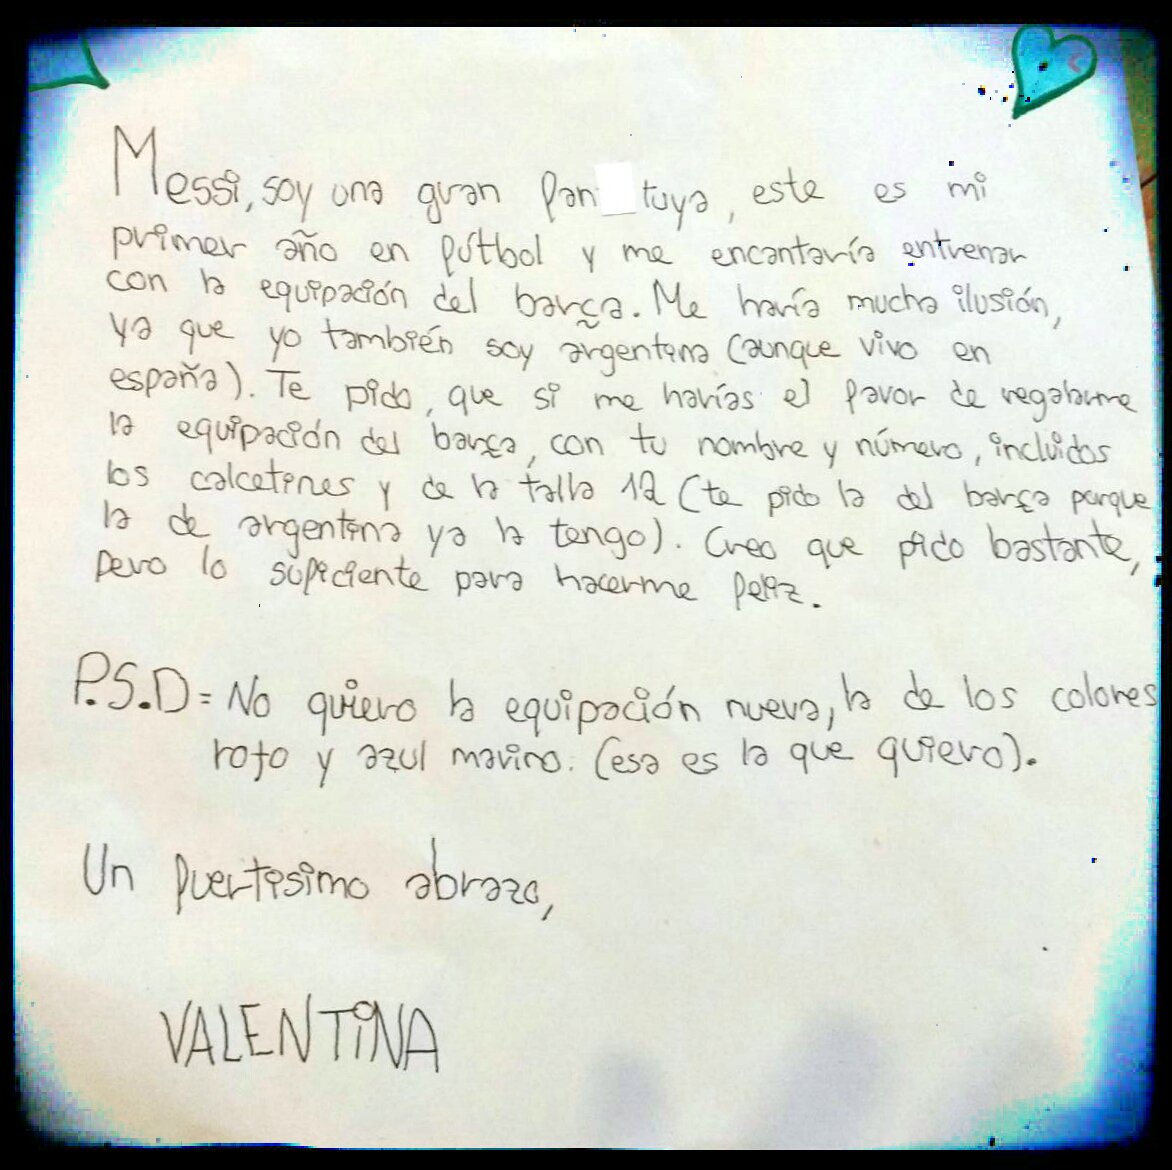 Messi, soy una gran fan tuya, este es mi
primer año en fútbol y me encantaría entrenar
con la equipación del barça. Me haría mucha ilusión,
ya que yo también soy argentina (aunque vivo en
españa). Te pido, que si me harías el favor de regalarme
la equipación del barça, con tu nombre y número, incluidos
los calcetines y de la talla 12 (te pido la del barça porque
la de argentina ya la tengo). Creo que pido bastante,
pero lo suficiente para hacerme feliz.
P.S.D = No quiero la equipación nueva, la de los colores
rojo y azul marino. (esa es la que quiero).
Un fuertisimo abrazo,
VALENTINA